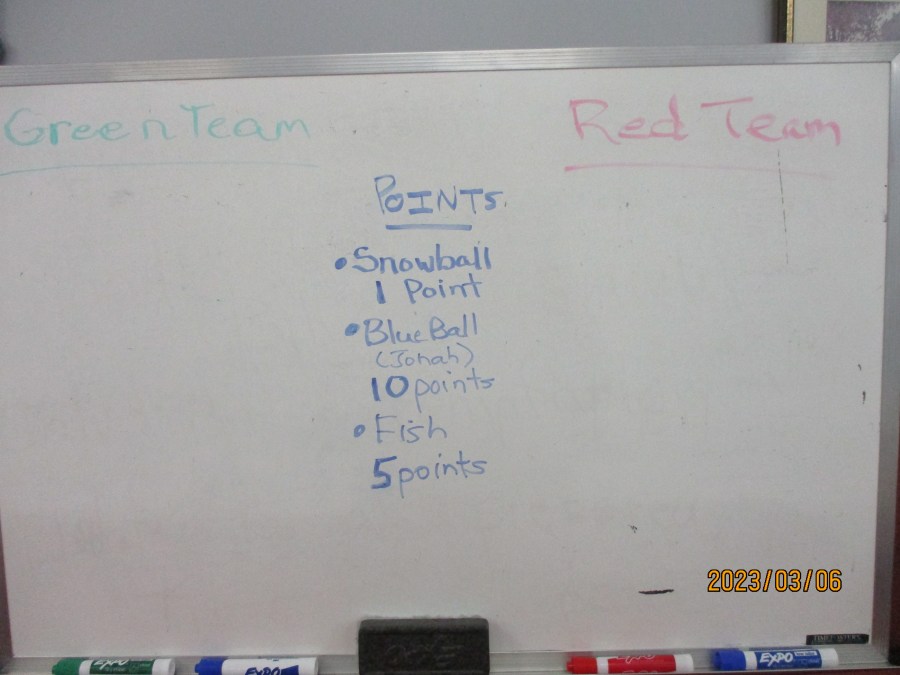 Green Team
Red Team
POINTS
• Snowball
1 Point
• Blue Ball
(Jonah)
10 points
• Fish
5 points
2023/03/06
EXPO
EXPO
EXPO
EXPO